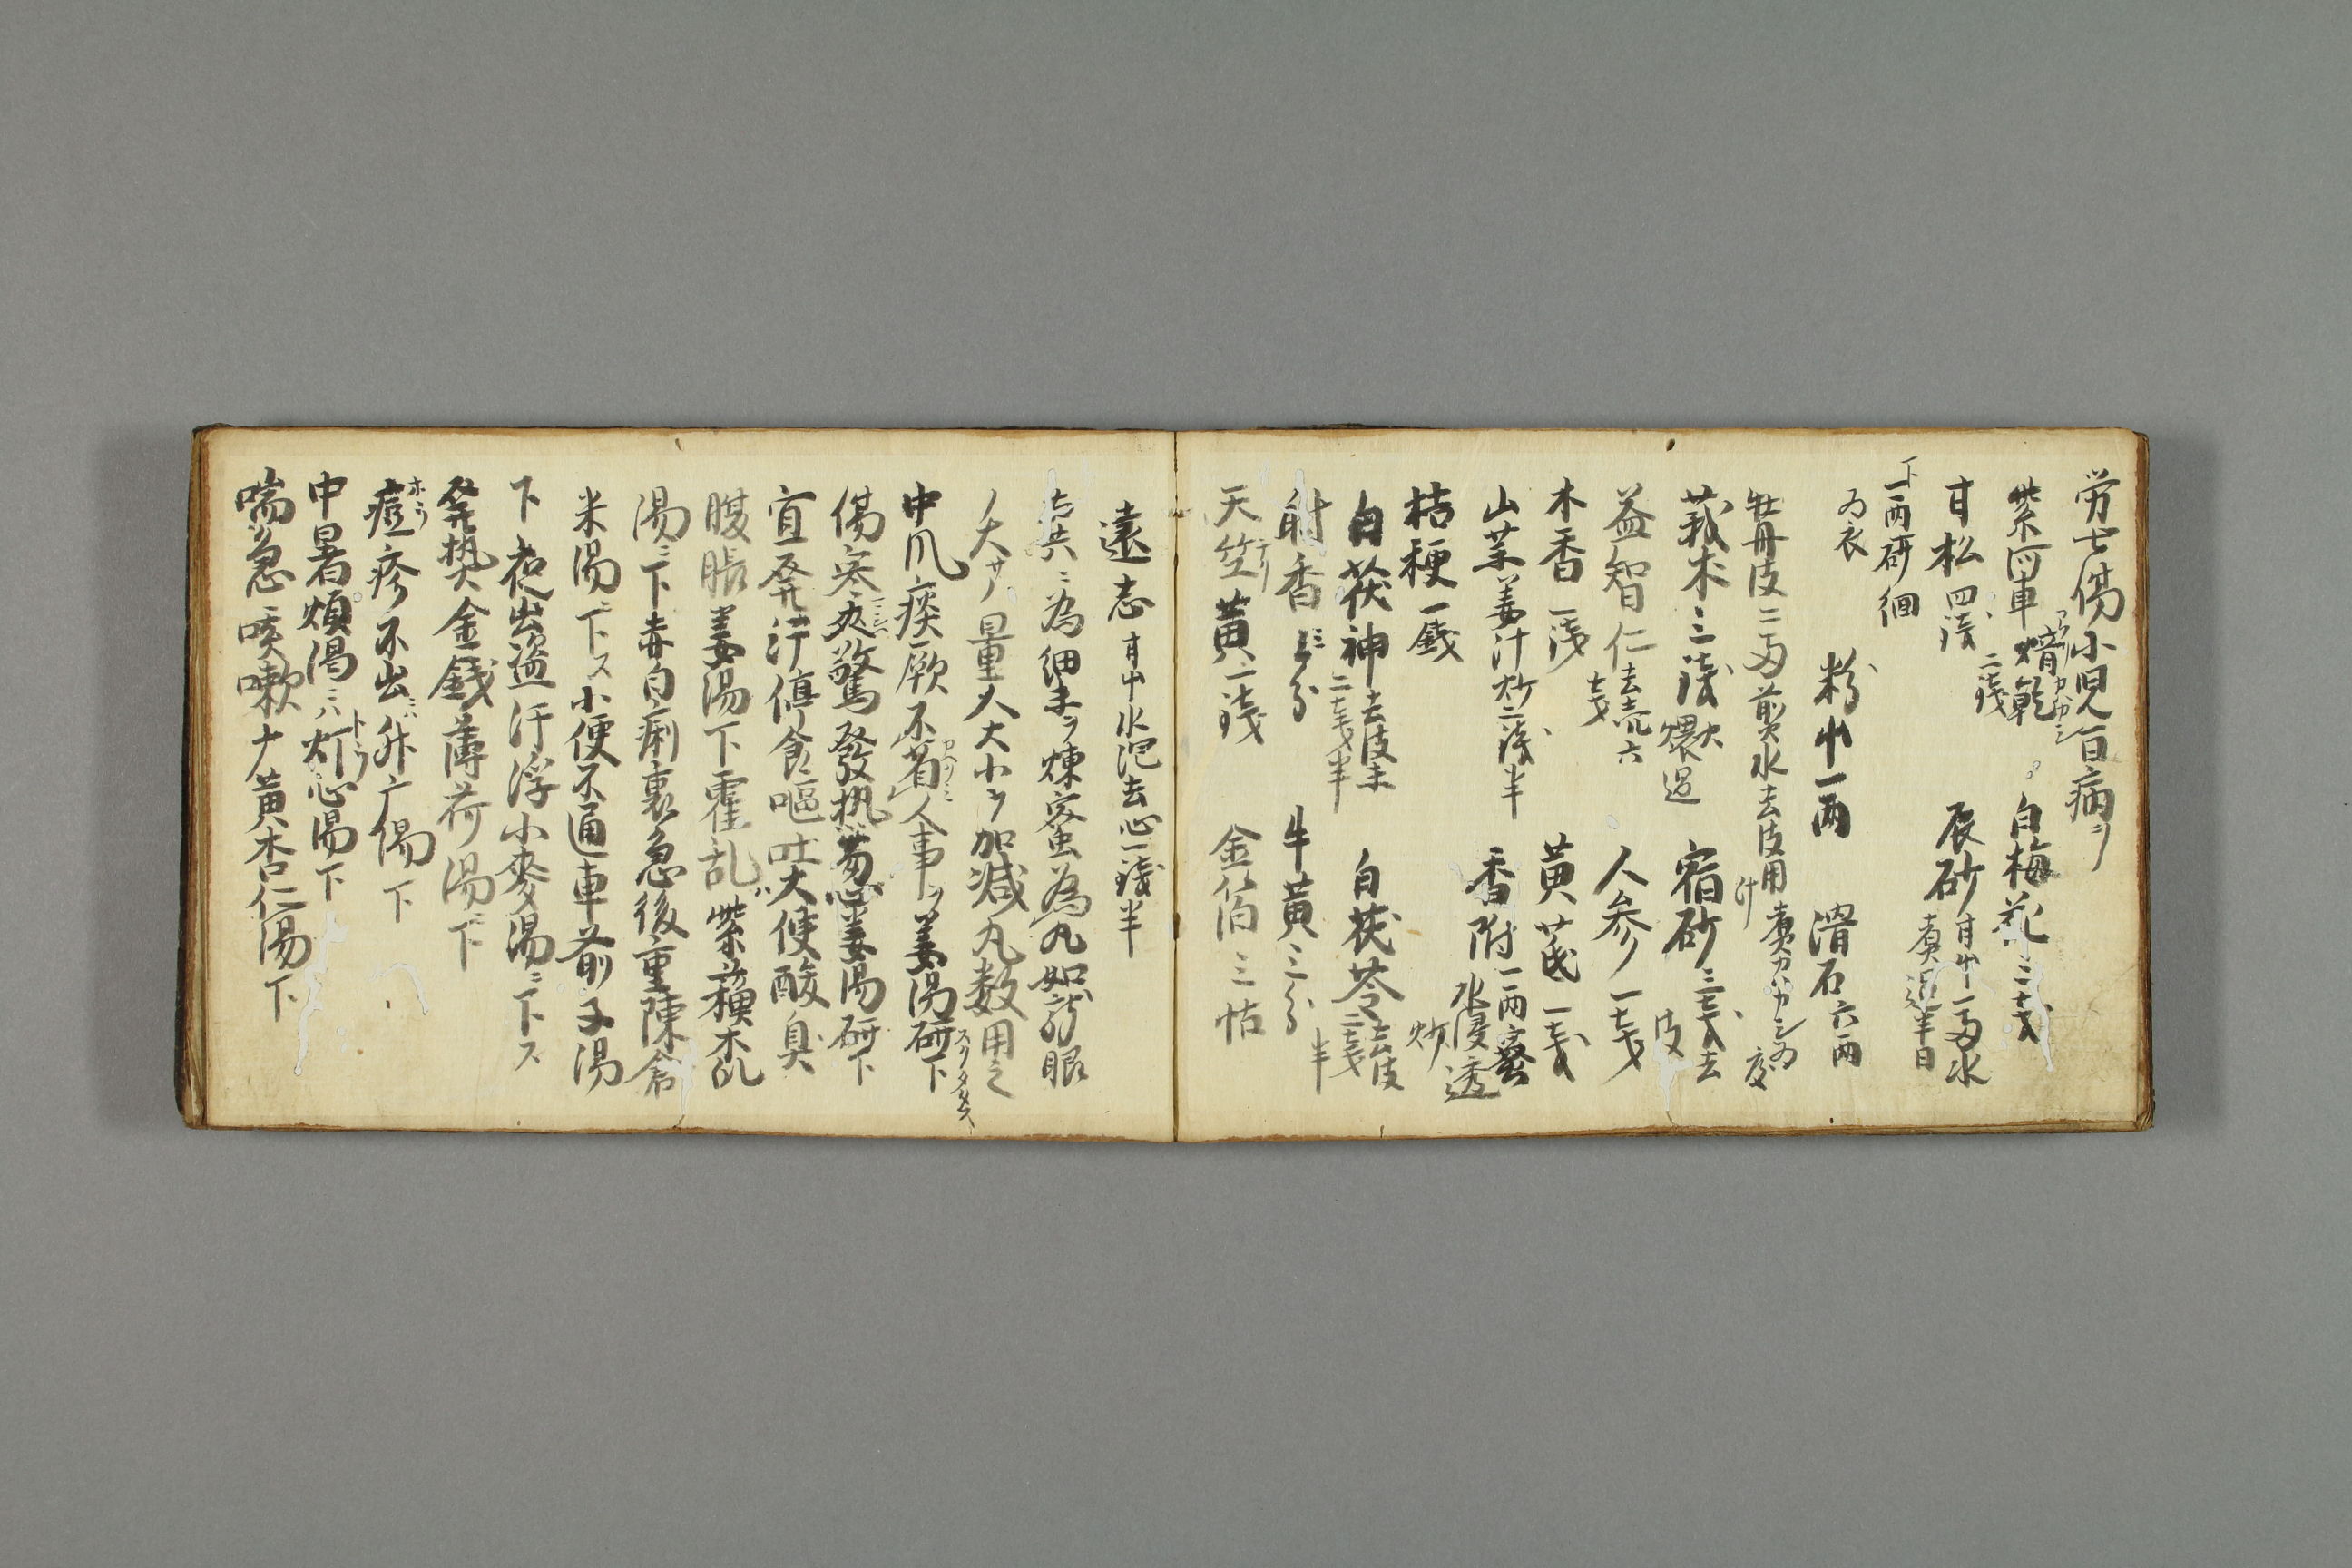 労七傷小児百病ヲ
紫河車 焙乾 二銭 白梅花 三戔
甘松 四銭 辰砂 甘艸一両水煮過半日
下一両研細
為衣
粉艸一両 滑石六両
牡丹皮二両煎水去皮用汁煮
莪朮三銭火煨過 宿砂三戔去皮
益智仁去売六戔 人参一戔
木香一銭 黄芪一戔
山薬姜汁炒二銭半 香附一両蜜水浸透炒
桔梗一銭
白茯神去皮木二戔半 白茯苓去皮二戔半
射香三分 牛黄三分
天竺黄一銭 金箔三帖
遠志甘艸水泡去心一銭半
右共ニ為細末ヲ煉蜜為丸如龍眼
大サノ量人大小ヲ加減丸数用之
中風痰厥不省人事ヲ姜湯研下
傷寒夾驚發热葱姜湯研下
宜発汗停食嘔吐大便酸臭
腹脹姜湯下霍乱紫蘓木瓜
湯ニ下赤白痢裏急後重陳倉
米湯下ス小便不通車前子湯
下夜出盗汗浮小麥湯ニ下ス
発熱金銭薄荷湯下
痘疹不出ニハ升广湯下
中暑煩渇ニハ灯心湯下
喘急咳嗽ナ黄杏仁湯下